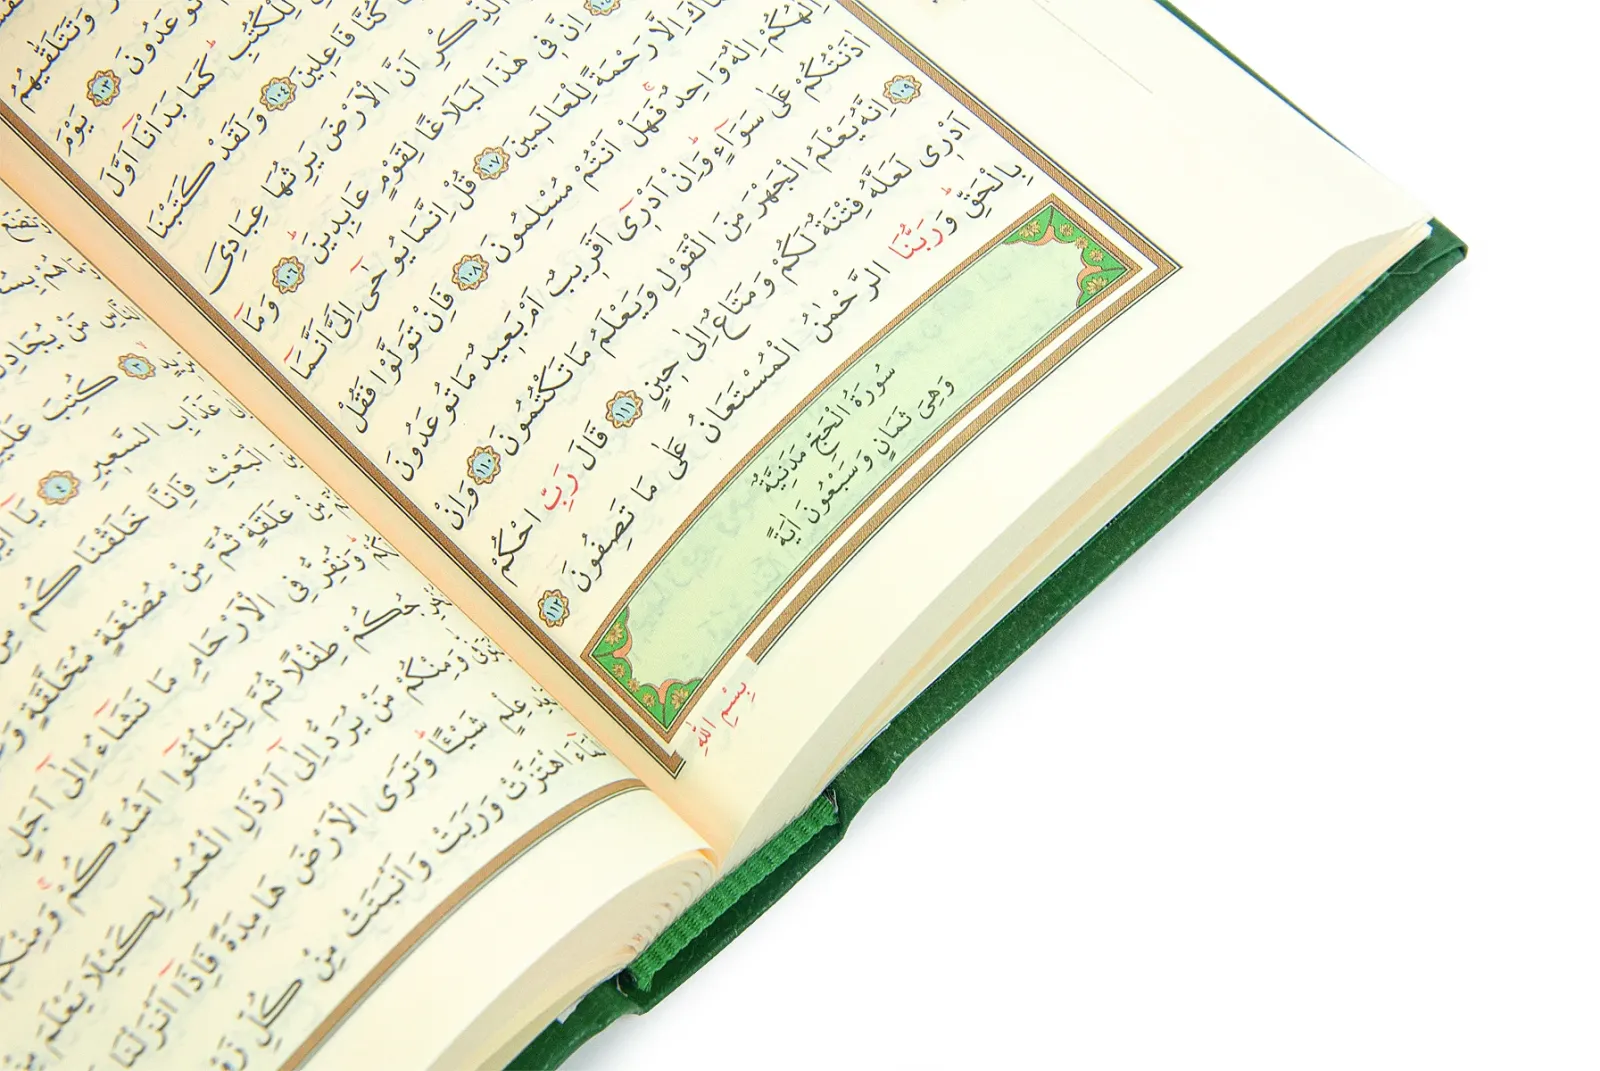 وَتَتَلَقّٰيهُمُ
تُوعَدُونَ ﴿١٠٣﴾ يَوْمَ
لِلْكُتُبِ كَمَا بَدَأْنَٓا اَوَّلَ
كُنَّا فَاعِلٖينَ ﴿١٠٤﴾ وَلَقَدْ كَتَبْنَا
الذِّكْرِ اَنَّ الْاَرْضَ يَرِثُهَا عِبَادِيَ
اِنَّ فٖى هٰذَا لَبَلَاغًا لِقَوْمٍ عَابِدٖينَ ﴿١٠٦﴾ وَمَٓا
اِلَّا رَحْمَةً لِلْعَالَمٖينَ ﴿١٠٧﴾ قُلْ اِنَّمَا يُوحٰٓى اِلَيَّ اَنَّمَٓا
اِلٰهُكُمْ اِلٰهٌ وَاحِدٌ فَهَلْ اَنْتُمْ مُسْلِمُونَ ﴿١٠٨﴾ فَاِنْ تَوَلَّوْا فَقُلْ
اٰذَنْتُكُمْ عَلٰى سَوَٓاءٍ وَاِنْ اَدْرٖٓى اَقَرٖيبٌ اَمْ بَعٖيدٌ مَا تُوعَدُونَ
﴿١٠٩﴾ اِنَّهُ يَعْلَمُ الْجَهْرَ مِنَ الْقَوْلِ وَيَعْلَمُ مَا تَكْتُمُونَ ﴿١١٠﴾ وَاِنْ
اَدْرٖى لَعَلَّهُ فِتْنَةٌ لَكُمْ وَمَتَاعٌ اِلٰى حٖينٍ ﴿١١١﴾ قَالَ رَبِّ احْكُمْ
بِالْحَقِّ وَرَبُّنَا الرَّحْمٰنُ الْمُسْتَعَانُ عَلٰى مَا تَصِفُونَ ﴿١١٢﴾
سُورَةُ الْحَجِّ مَدَنِيَّةٌ
وَهِيَ ثَمَانٍ وَسَبْعُونَ اٰيَةً
بِسْمِ اللّٰهِ
مَنْ يُجَادِلُ
﴿٣﴾ كُتِبَ عَلَيْهِ
عَذَابِ السَّعٖيرِ ﴿٤﴾ يَٓا
الْبَعْثِ فَاِنَّا خَلَقْنَاكُمْ مِنْ
مِنْ عَلَقَةٍ ثُمَّ مِنْ مُضْغَةٍ مُخَلَّقَةٍ
وَنُقِرُّ فِى الْاَرْحَامِ مَا نَشَٓاءُ اِلٰٓى اَجَلٍ
طِفْلًا ثُمَّ لِتَبْلُغُٓوا اَشُدَّكُمْ وَمِنْكُمْ
وَمِنْكُمْ مَنْ يُرَدُّ اِلٰٓى اَرْذَلِ الْعُمُرِ لِكَيْلَا يَعْلَمَ مِنْ
عِلْمٍ شَيْـًٔا وَتَرَى الْاَرْضَ هَامِدَةً فَاِذَٓا اَنْزَلْنَا
اهْتَزَّتْ وَرَبَتْ وَاَنْبَتَتْ مِنْ كُلِّ